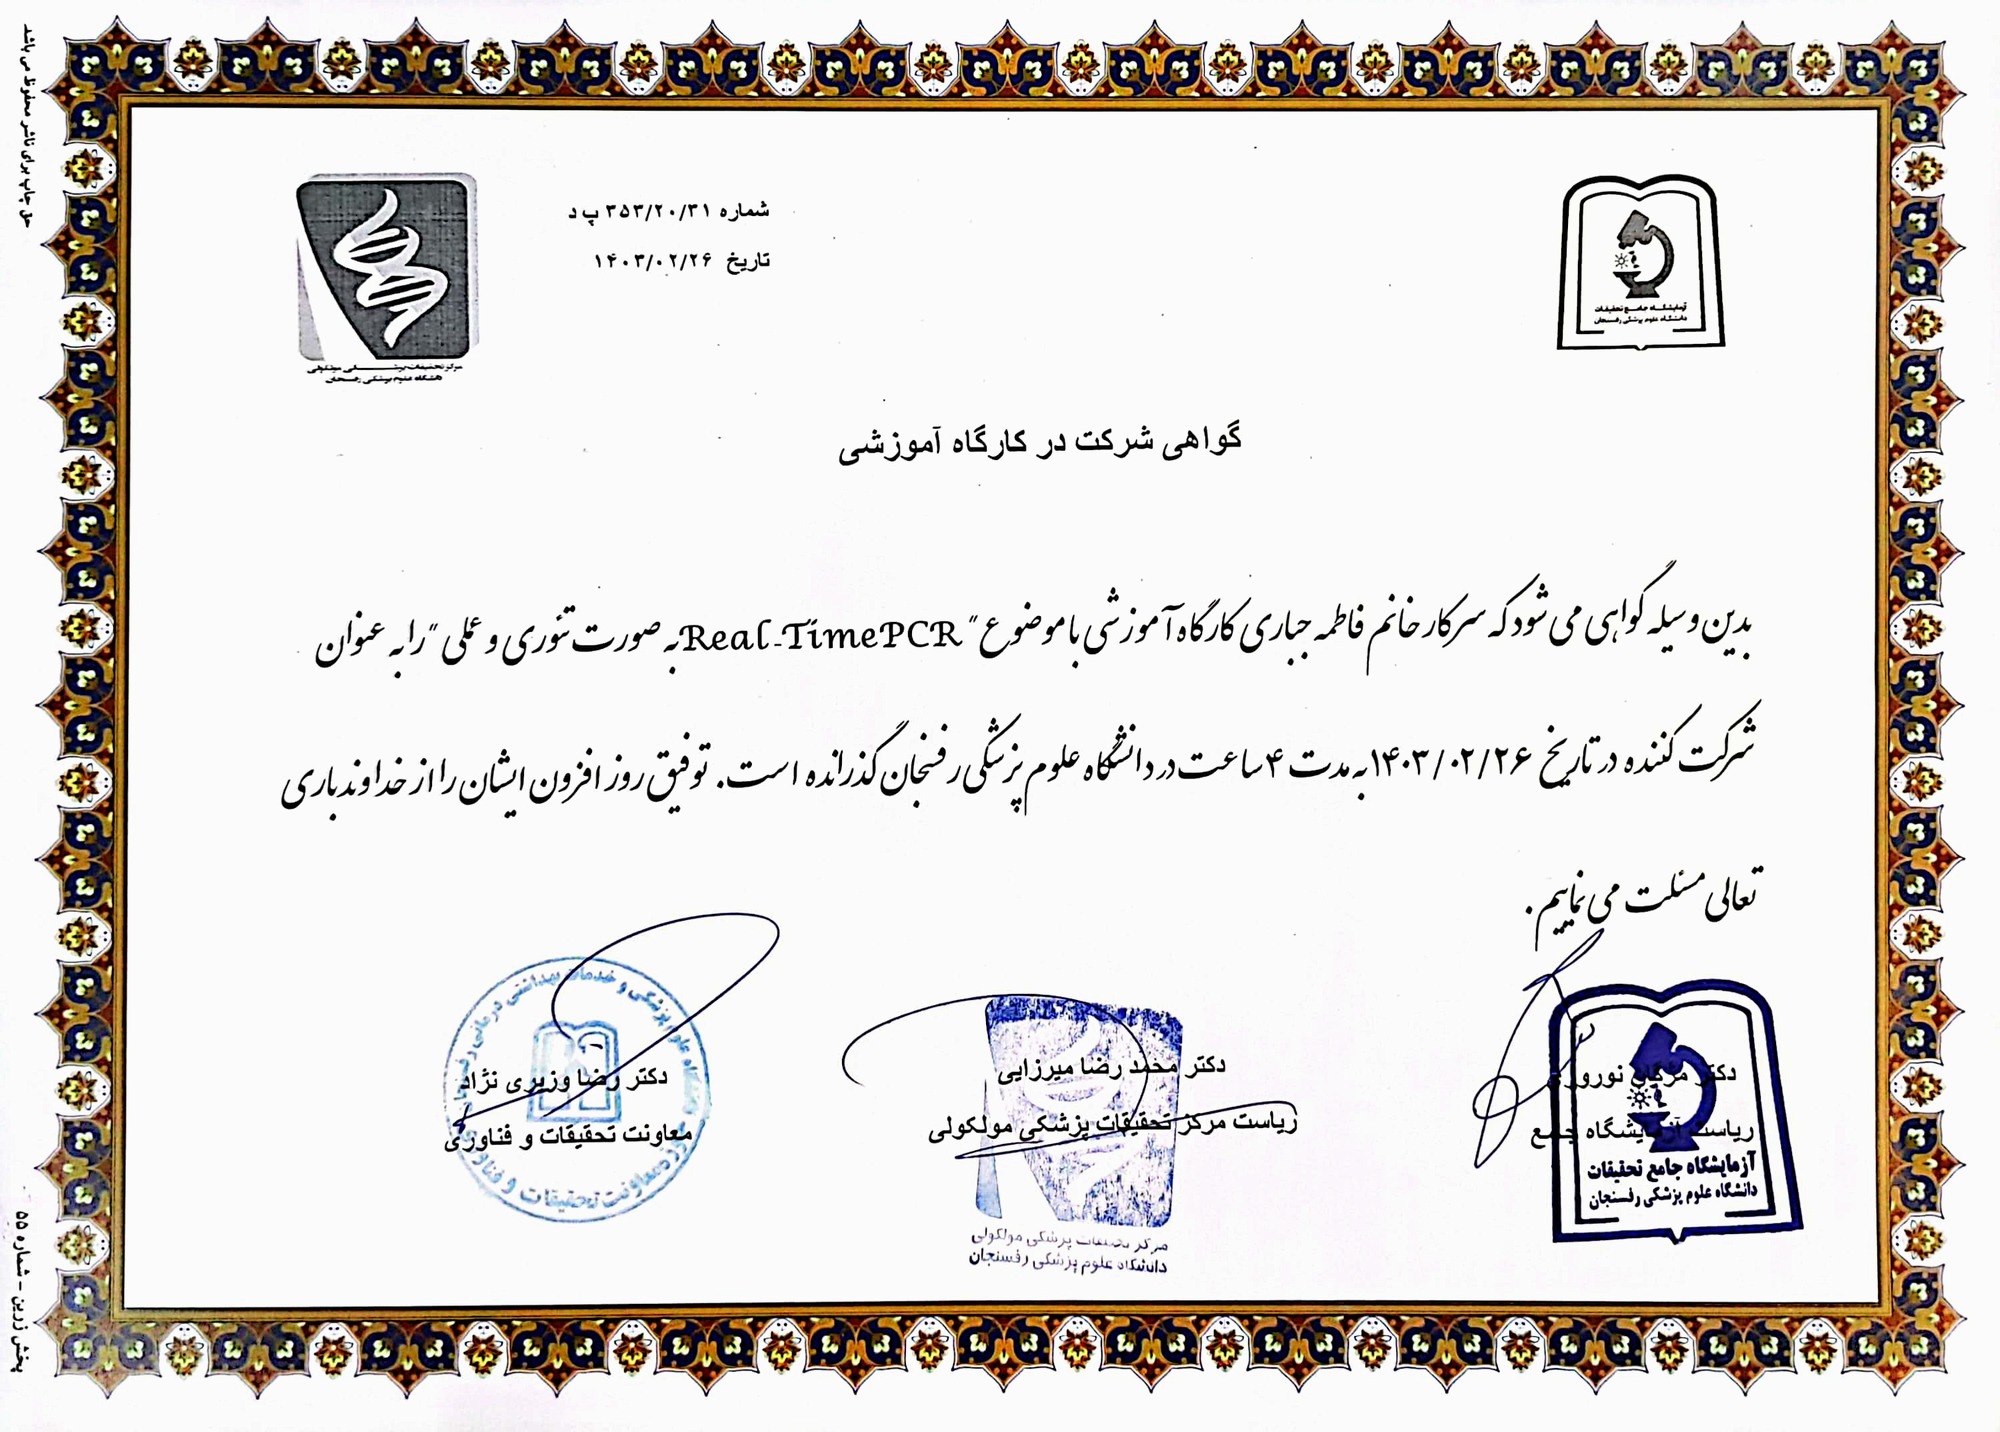 حق چاپ برای ناشر محفوظ می باشد
شماره ۳۵۳/۲۰/۳۱ پ د
تاریخ ۱۴۰۳/۰۲/۲۶
آزمایشگاه جامع تحقیقات
دانشگاه علوم پزشکی رفسنجان
مرکز تحقیقات پزشکی مولکولی
دانشگاه علوم پزشکی رفسنجان
گواهی شرکت در کارگاه آموزشی
بدین وسیله گواهی می شود که سرکار خانم فاطمه جباری کارگاه آموزشی با موضوع "Real-TimePCR به صورت تئوری و عملی" را به عنوان
شرکت کننده در تاریخ ۱۴۰۳/۰۲/۲۶ به مدت ۴ ساعت در دانشگاه علوم پزشکی رفسنجان گذرانده است. توفیق روز افزون ایشان را از خداوند باری
تعالی مسئلت می نماییم.
دکتر مژگان نوروزی
ریاست آزمایشگاه جامع
آزمایشگاه جامع تحقیقات
دانشگاه علوم پزشکی رفسنجان
دکتر محمد رضا میرزایی
ریاست مرکز تحقیقات پزشکی مولکولی
مرکز تحقیقات پزشکی مولکولی
دانشگاه علوم پزشکی رفسنجان
دکتر رضا وزیری نژاد
معاونت تحقیقات و فناوری
دانشگاه علوم پزشکی و خدمات بهداشتی درمانی رفسنجان
حوزه معاونت تحقیقات و فناوری
پخش زرین - شماره ۵۵